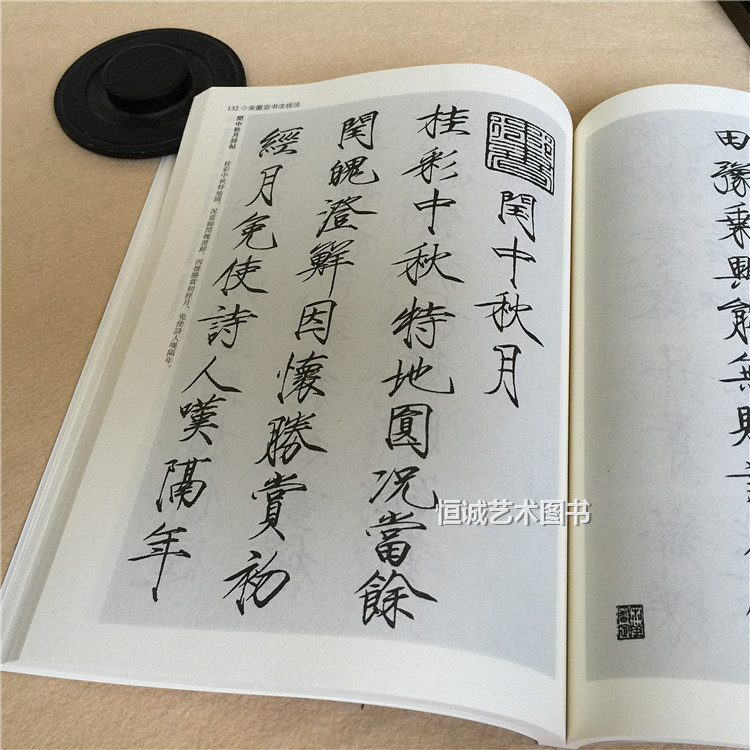 132 ◇ 宋徽宗书法技法
豫乘興能無
閏中秋月
桂彩中秋特地圓况當餘
閏魄澄鮮因懷勝賞初
經月免使詩人嘆隔年
閏中秋月詩帖
桂彩中秋特地圓，况當餘閏魄澄鮮。因懷勝賞初經月，免使詩人嘆隔年。
恒诚艺术图书